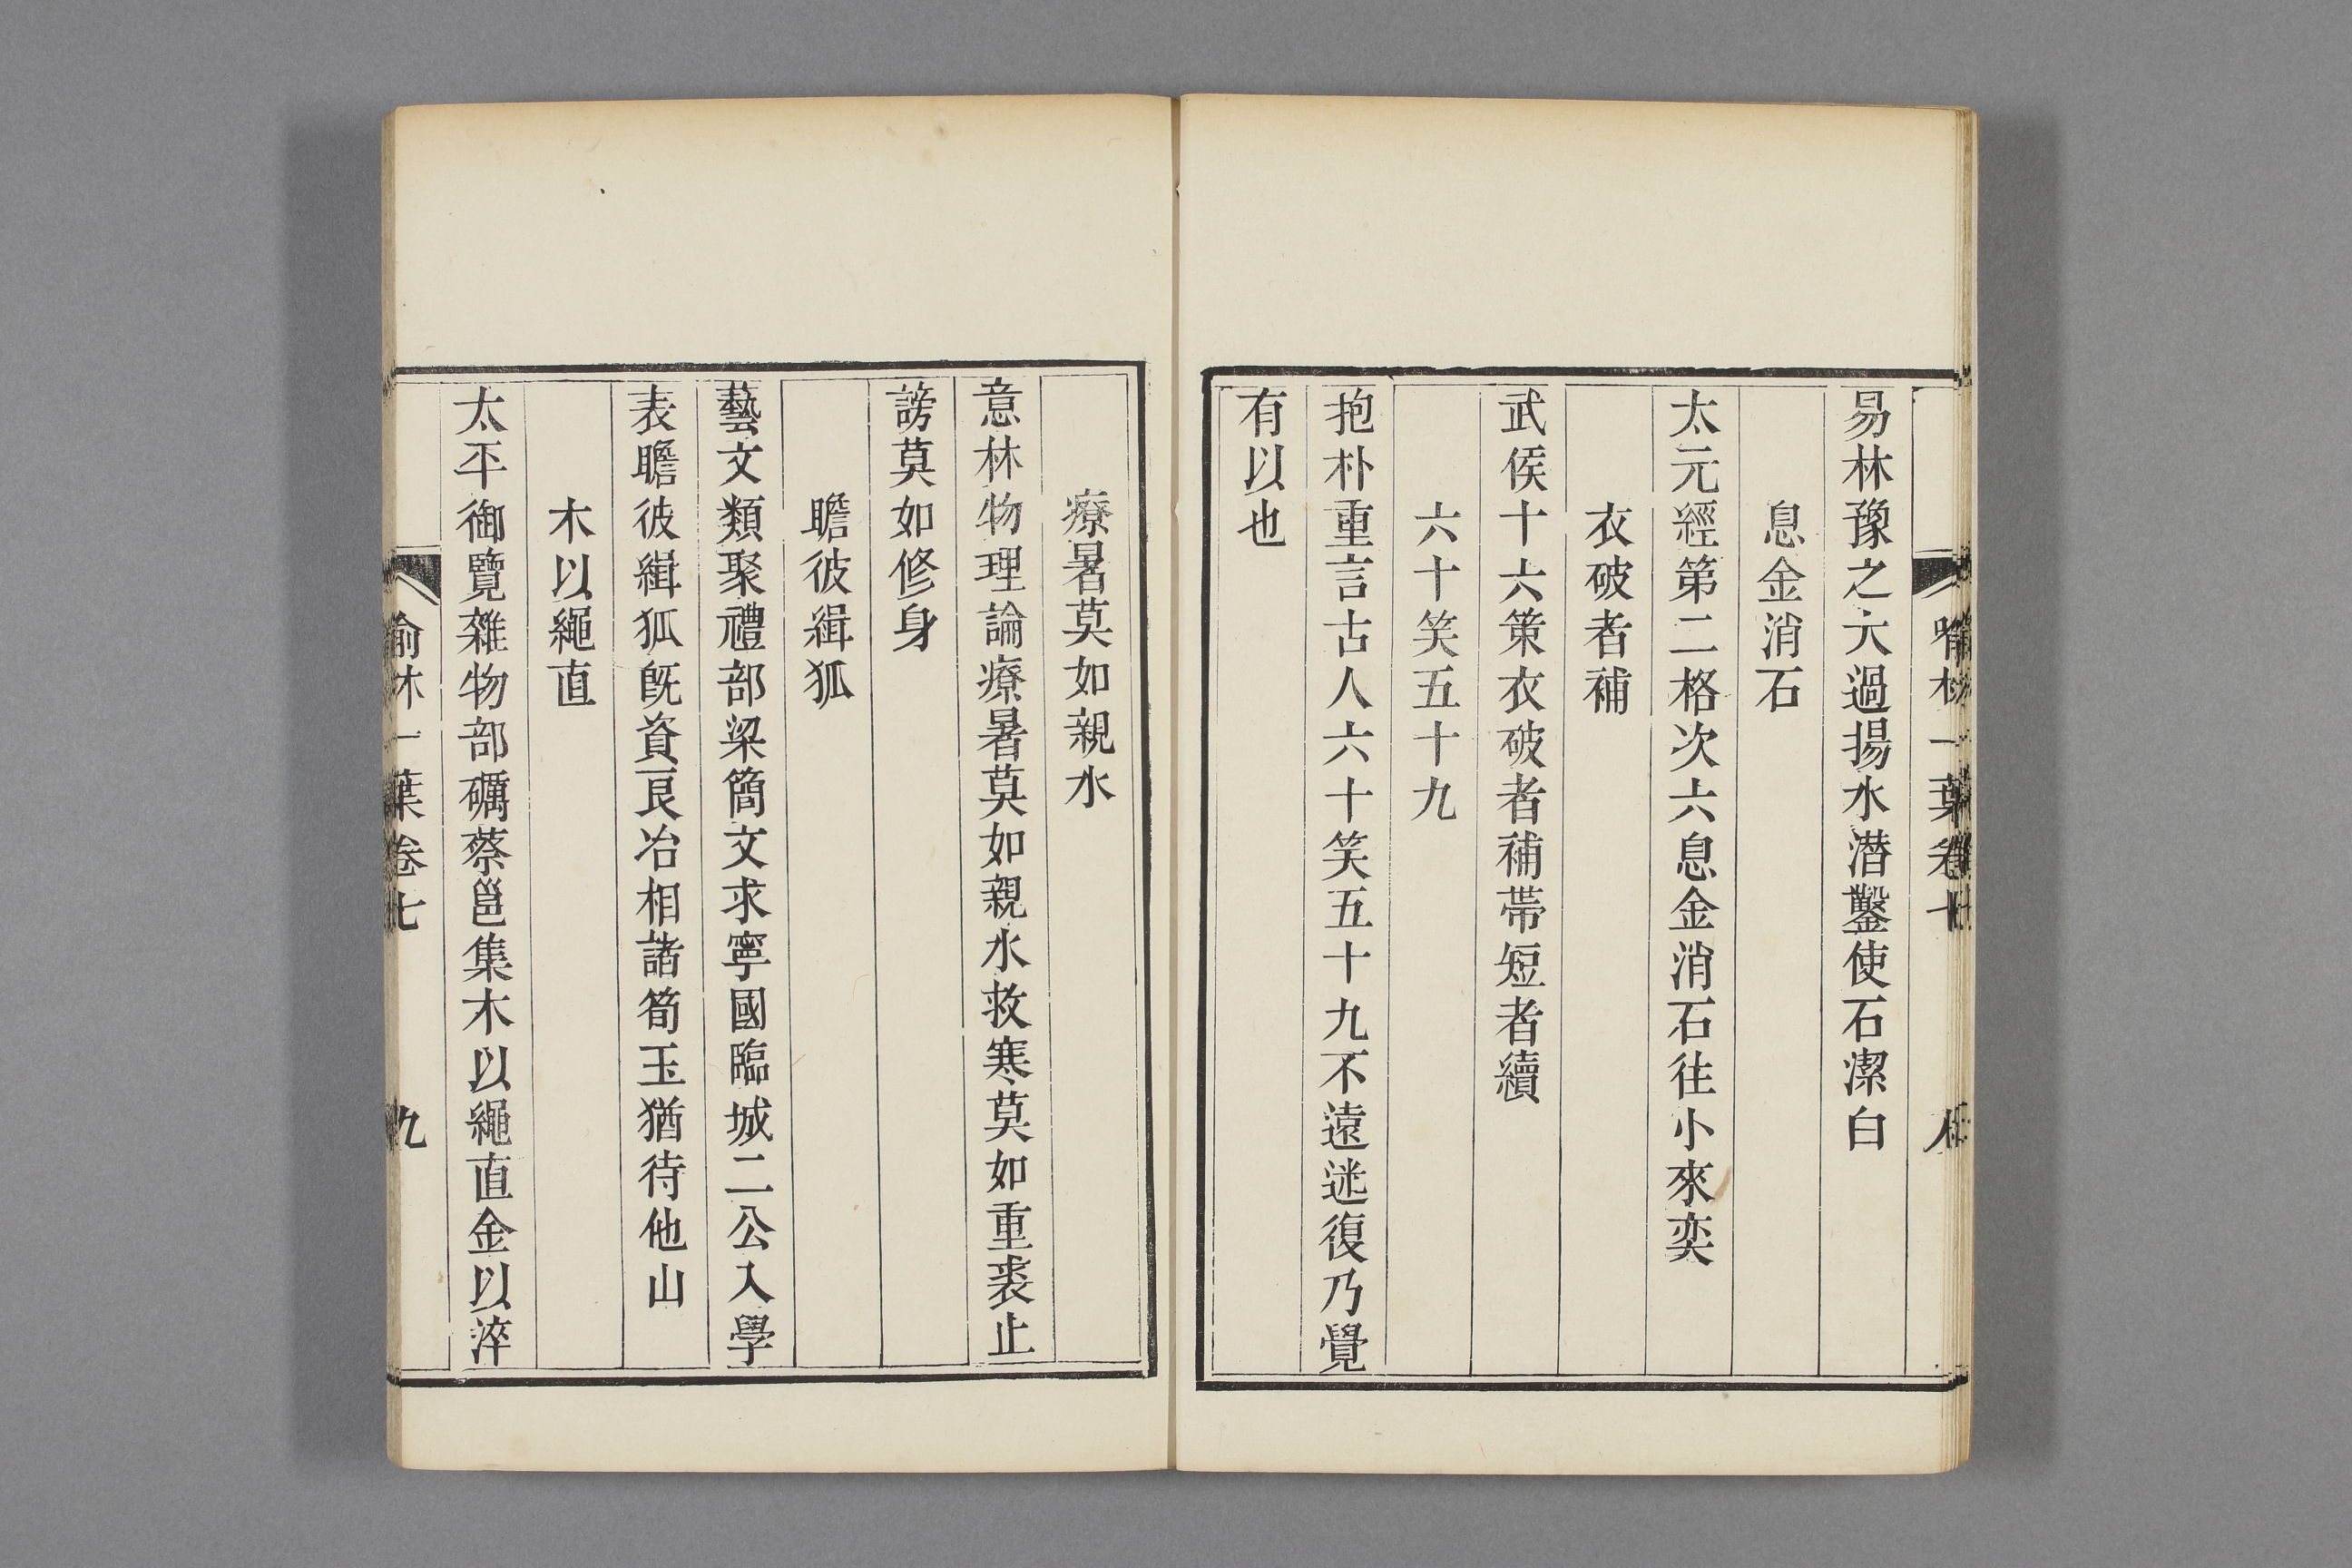 易林豫之大過揚水潛鑿使石潔白
息金消石
太元經第二格次六息金消石往小來奕
衣破者補
武侯十六策衣破者補帶短者續
六十笑五十九
抱朴重言古人六十笑五十九不遠迷復乃覺
有以也
療暑莫如親水
意林物理論療暑莫如親水救寒莫如重裘止
謗莫如修身
瞻彼緝狐
藝文類聚禮部梁簡文求寧國臨城二公入學
表瞻彼緝狐既資良冶相諸筍玉猶待他山
木以繩直
太平御覽雜物部礪蔡邕集木以繩直金以淬
喻林一葉卷七
九